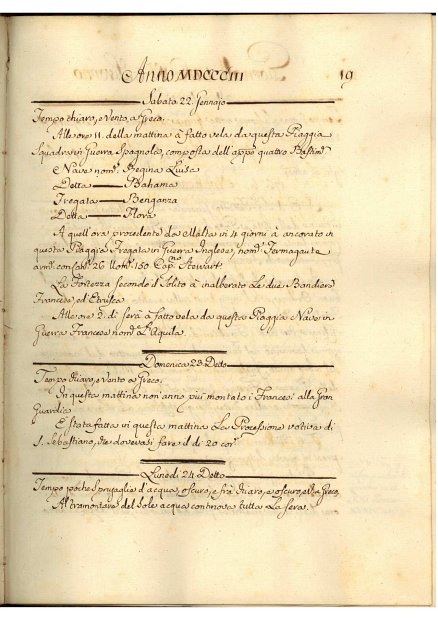 Anno MDCCCIII 19
Sabato 22. Gennajo
Tempo chiaro, e Vento, a Greco.
Alle ore 11. della mattina à fatto vela da questa Piaggia
Squadra in Guerra Spagnola, composta dell'app.o quattro Bastim.ti
Nave nom.ta Regina Luisa
Detta — Bahama
Fregata — Benganza
Detta — Flora
A quell'ora procedente da Malta in 4 giorni à ancorato in
questa Piaggia Fregata in Guerra Inglese, nom.ta Termagante
arm.ta con Cab.i 26 Uom.i 150 Cap.o Stewart
La Fortezza secondo il Solito à inalberato Le due Bandiere
Francese ed Etrusca
Alle ore 2. di sera à fatto vela da questa Piaggia Nave in
Guerra Francese nom.ta L'Aquila.
Domenica 23 Detto
Tempo chiaro, e Vento a Greco.
In questa mattina non anno più montato i Francesi alla Gran
Guardia
E stata fatta in questa mattina La Processione votiva di
S. Sebastiano, che dovevasi fare il dì 20 cor.e
Lunedì 24 Detto
Tempo poche Spruzaglie d'acqua, oscuro, e frà chiaro, e oscuro, a Greco
Al tramontare del Sole acqua continova tutta La Sera.